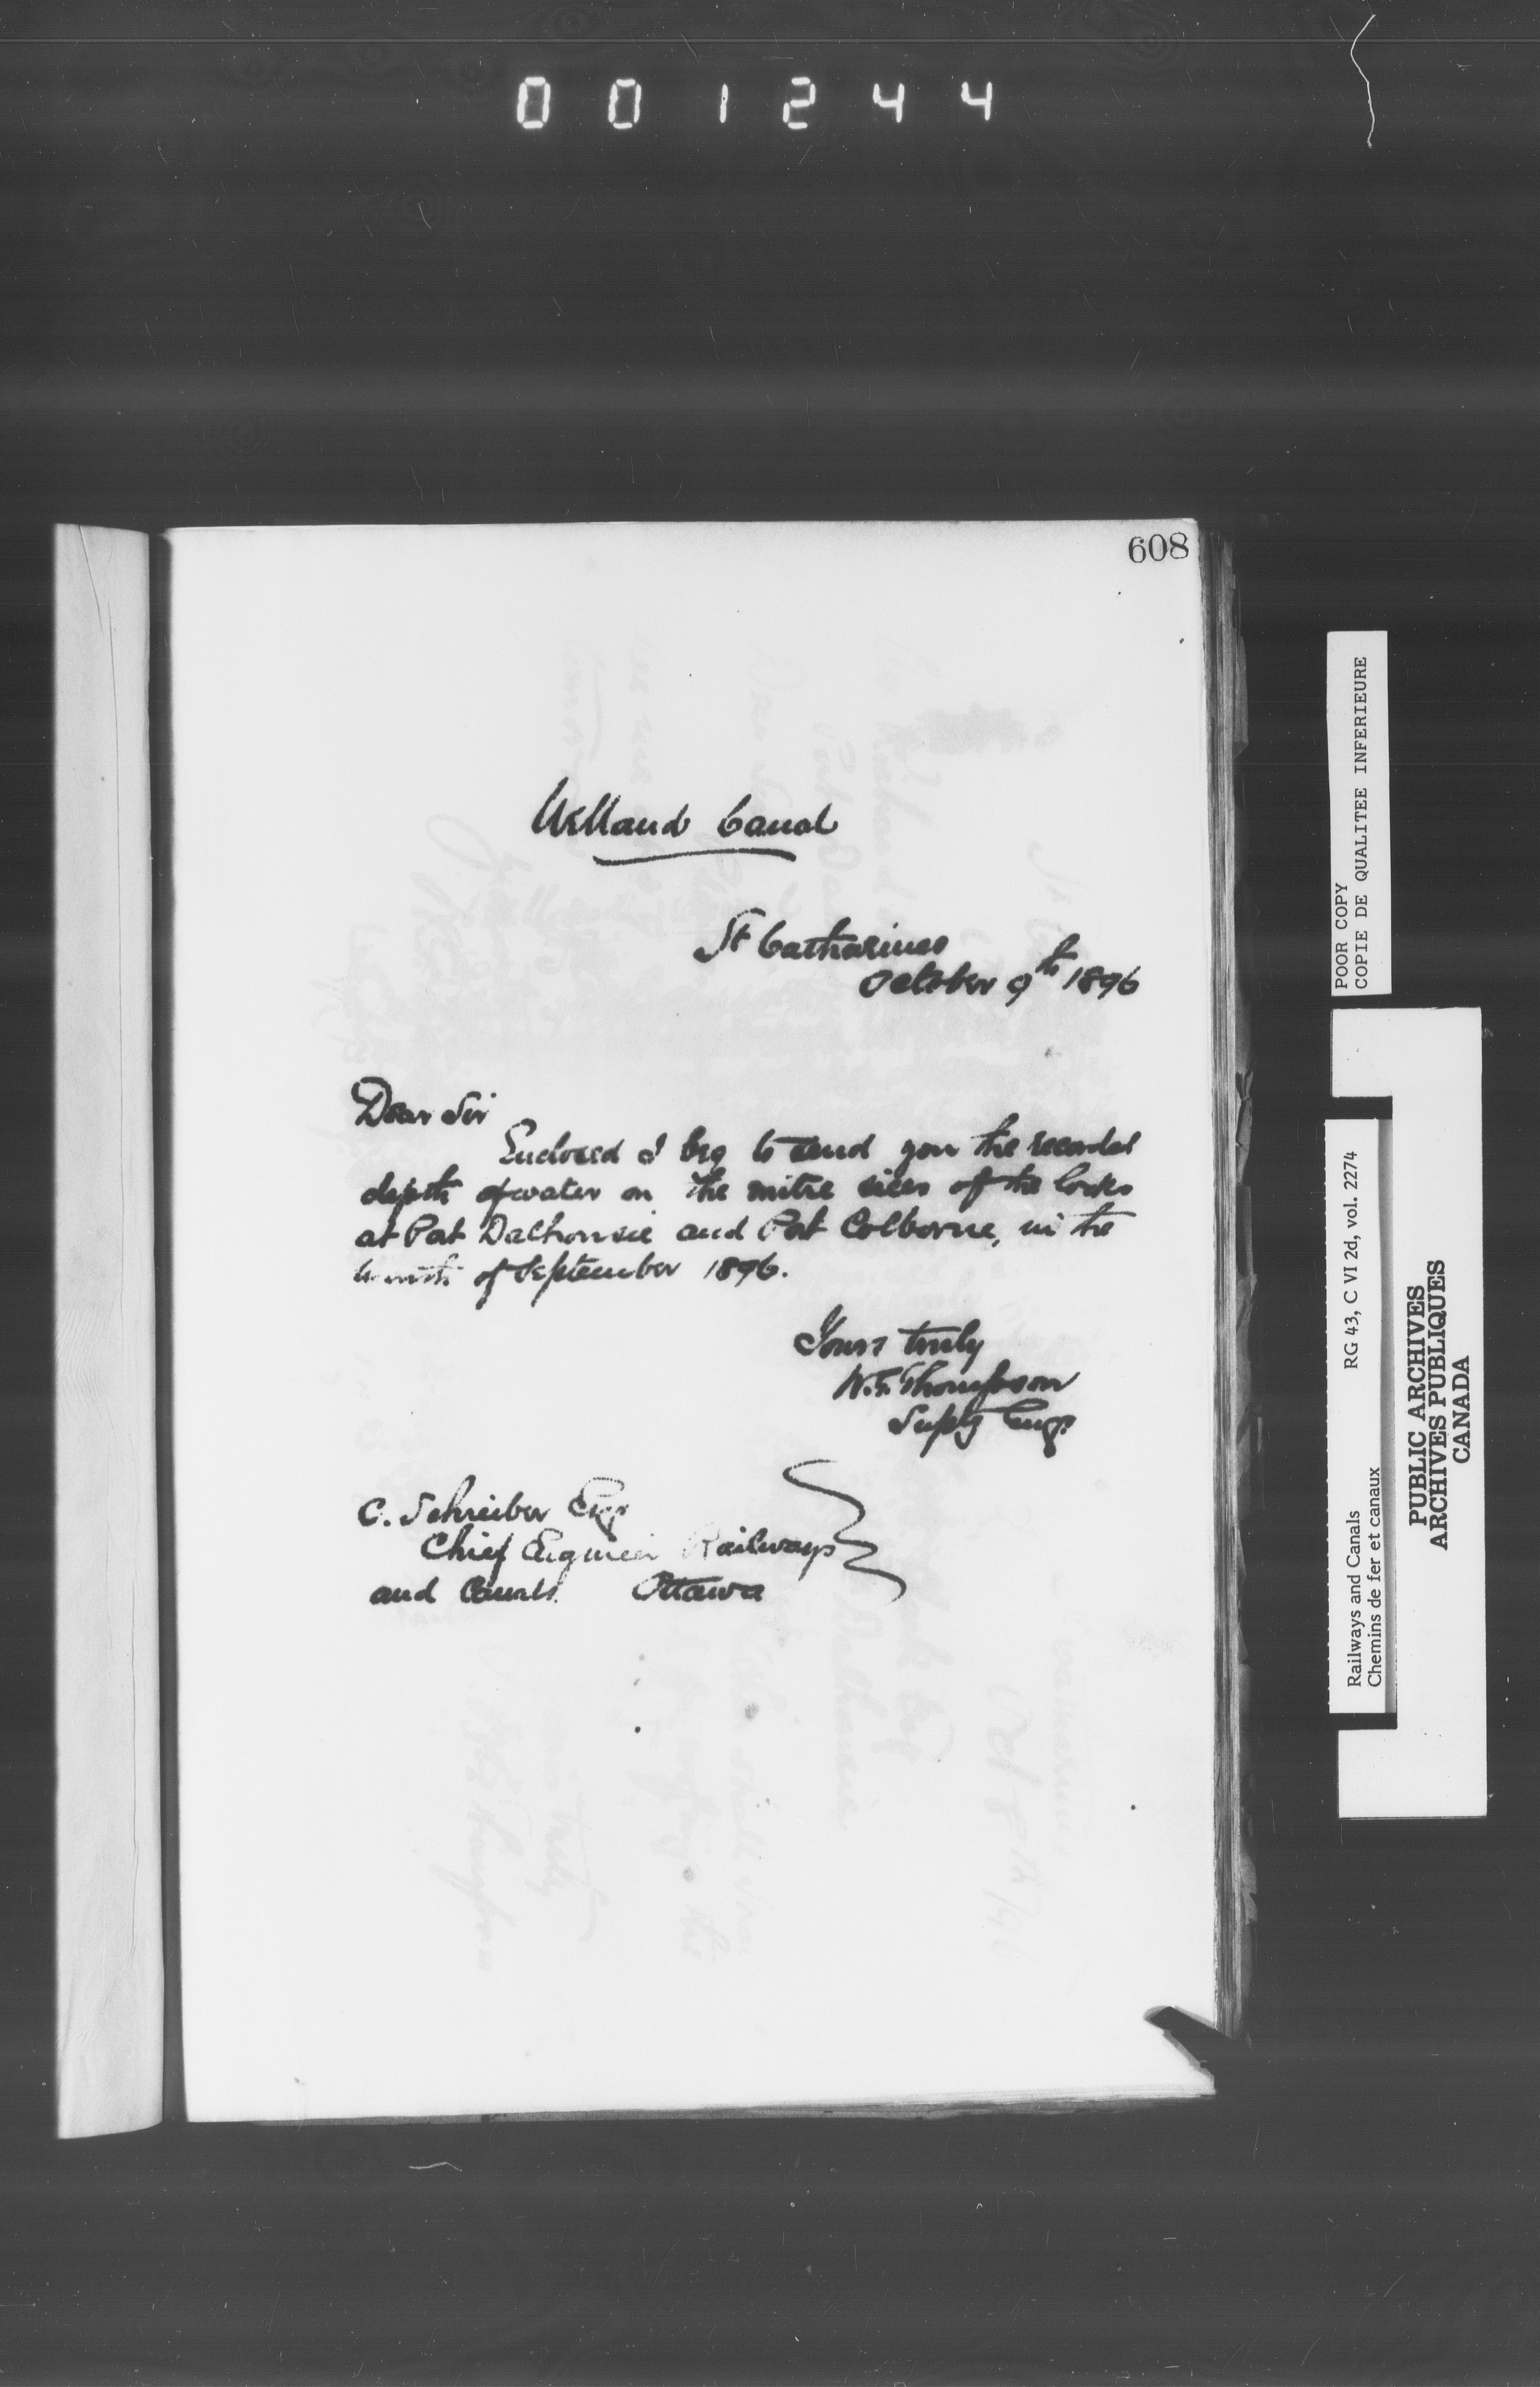 001244
608
Welland Canal
St Catharines
October 9th 1896
Dear Sir
Enclosed I beg to send you the recorded
depth of water on the mitre sills of the locks
at Port Dalhousie and Port Colborne, in the
month of September 1896.
Yours truly
W.G. Thompson
Suptg Engr
C. Schreiber Esqr
Chief Engineer Railways
and Canals. Ottawa
POOR COPY
COPIE DE QUALITEE INFERIEURE
Railways and Canals RG 43, C VI 2d, vol. 2274
Chemins de fer et canaux
PUBLIC ARCHIVES
ARCHIVES PUBLIQUES
CANADA